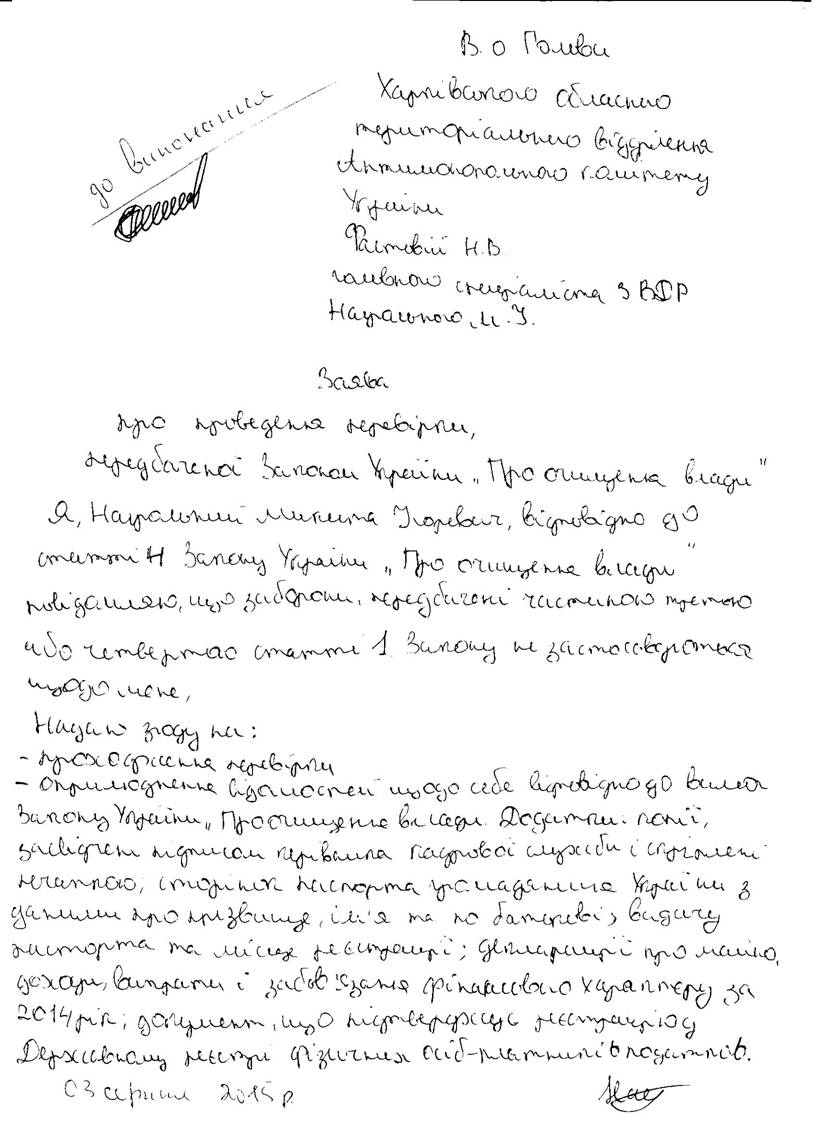 В. о Голови
Харківського обласного
територіального відділення
до виконання
Антимонопольного комітету
України
Фастовій Н.В.
головного спеціаліста з ВДР
М. І.
Заява
про проведення перевірки,
передбаченої Законом України „Про очищення влади"
Я, Микита Ігоревич, відповідно до
статті 4 Закону України „Про очищення влади"
повідомляю, що заборони, передбачені частиною третьою
або четвертою статті 1 Закону не застосовуються
щодо мене,
Надаю згоду на:
- проходження перевірки
- оприлюднення відомостей щодо себе відповідно до вимог
Закону України „Про очищення влади. Додатки: копії,
засвідчені підписом керівника кадрової служби і скріплені
печаткою, сторінок паспорта громадянина України з
даними про прізвище, ім'я та по батькові, видачу
паспорта та місце реєстрації; декларації про майно,
доходи, витрати і зобов'язання фінансового характеру за
2014 рік; документ, що підтверджує реєстрацію у
Державному реєстрі фізичних осіб-платників податків.
03 серпня 2015 р.